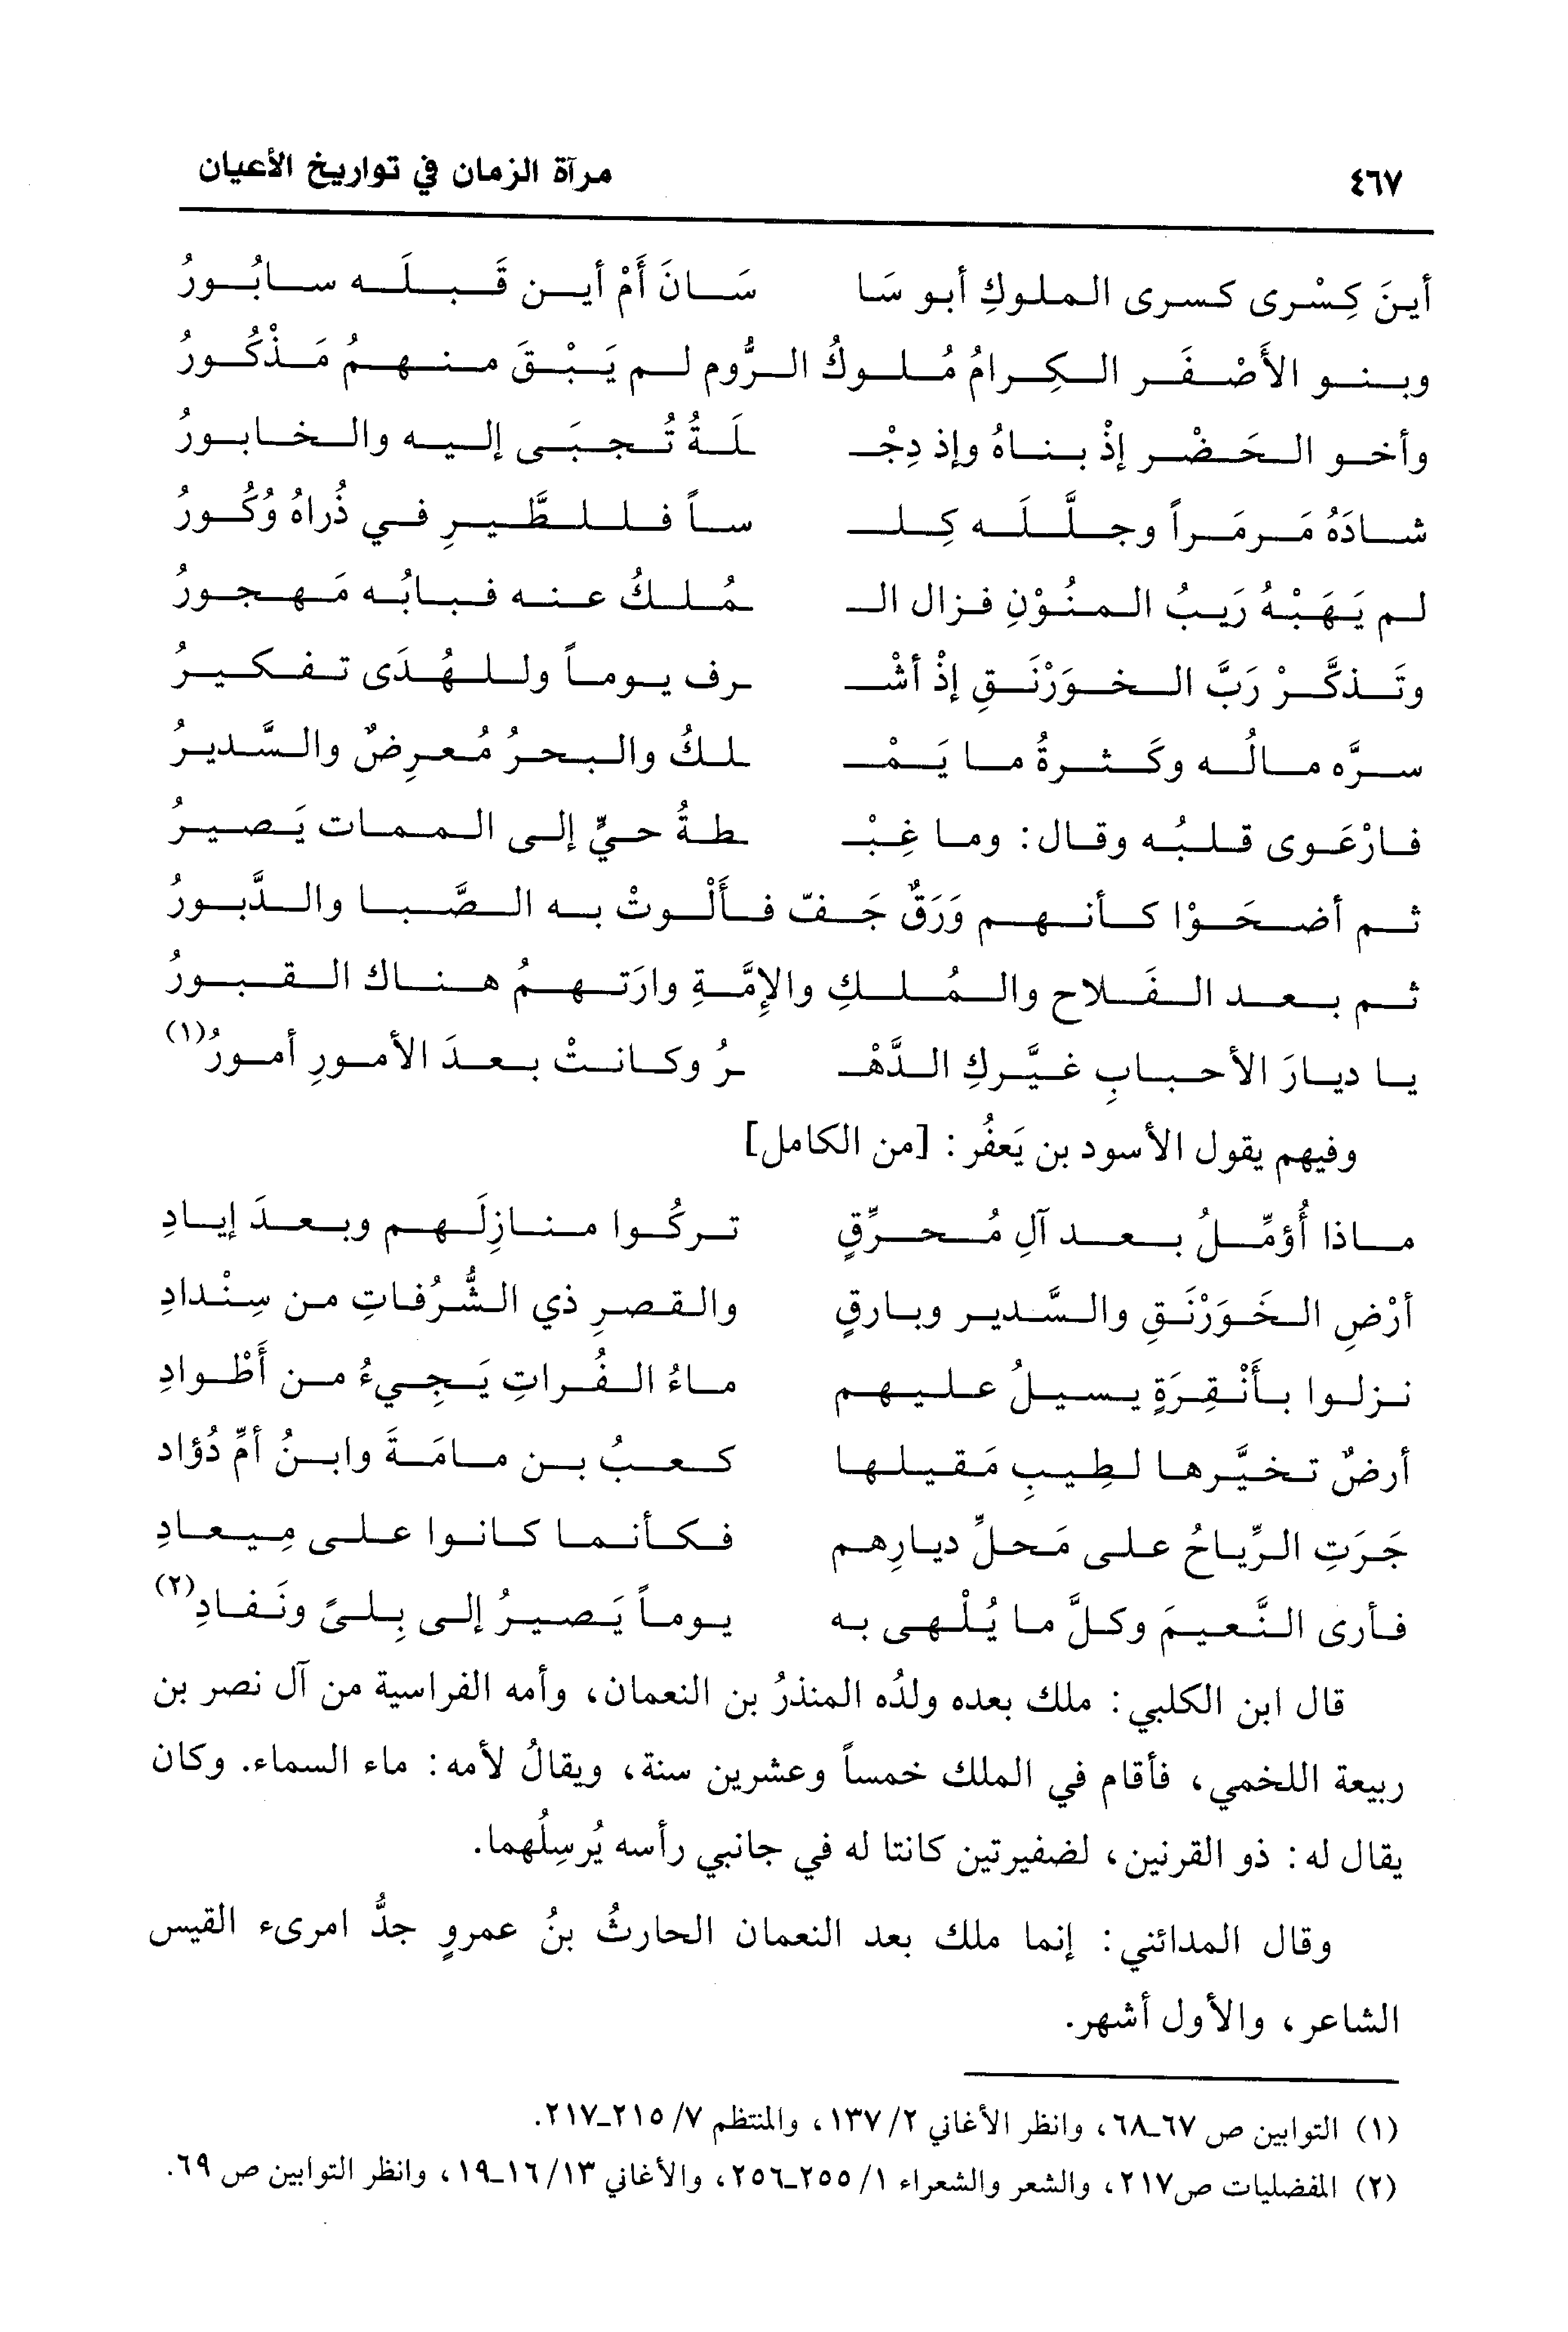 ٤٦٧ مرآة الزمان في تواريخ الأعيان
أينَ كِسْرى كسرى الملوكِ أبو سَا سَانَ أَمْ أين قَبلَه سابُورُ
وبنو الأَصْفَر الكِرامُ مُلوكُ الرُّوم لم يَبْقَ منهمُ مَذْكُورُ
وأخو الحَضْر إذْ بناهُ وإذ دِجْـ ـلَةُ تُجبَى إليه والخابورُ
شادَهُ مَرمَراً وجلَّلَه كِلـ ـساً فللطَّيرِ في ذُراهُ وُكُورُ
لم يَهَبْهُ رَيبُ المنُوْنِ فزال الـ ـمُلكُ عنه فبابُه مَهجورُ
وتَذكَّرْ رَبَّ الخوَرْنَقِ إذْ أشْـ ـرف يوماً وللهُدَى تفكيرُ
سرَّه مالُه وكَثرةُ ما يَمْـ ـلكُ والبحرُ مُعرِضٌ والسَّديرُ
فارْعَوى قلبُه وقال: وما غِبْـ ـطةُ حيٍّ إلى الممات يَصيرُ
ثم أضحَوْا كأنهم وَرَقٌ جَفّ فأَلْوتْ به الصَّبا والدَّبورُ
ثم بعد الفَلاح والمُلكِ والإِمَّةِ وارَتهمُ هناك القبورُ
يا ديارَ الأحبابِ غيَّركِ الدَّهْـ ـرُ وكانتْ بعدَ الأمورِ أمورُ(١)
وفيهم يقول الأسود بن يَعفُر: [من الكامل]
ماذا أُؤمِّلُ بعد آلِ مُحرِّقٍ تركُوا منازِلَهم وبعدَ إيادِ
أرْضِ الخَوَرْنَقِ والسَّدير وبارقٍ والقصرِ ذي الشُّرُفاتِ من سِنْدادِ
نزلوا بأَنْقِرَةٍ يسيلُ عليهم ماءُ الفُراتِ يَجِيءُ من أَطْوادِ
أرضٌ تخيَّرها لطِيبِ مَقيلها كعبُ بن مامَةَ وابنُ أمِّ دُؤاد
جَرَتِ الرِّياحُ على مَحلِّ ديارِهم فكأنما كانوا على مِيعادِ
فأرى النَّعيمَ وكلَّ ما يُلْهى به يوماً يَصيرُ إلى بِلىً ونَفادِ(٢)
قال ابن الكلبي: ملك بعده ولدُه المنذرُ بن النعمان، وأمه الفراسية من آل نصر بن
ربيعة اللخمي، فأقام في الملك خمساً وعشرين سنة، ويقالُ لأمه: ماء السماء. وكان
يقال له: ذو القرنين، لضفيرتين كانتا له في جانبي رأسه يُرسِلُهما.
وقال المدائني: إنما ملك بعد النعمان الحارثُ بنُ عمروٍ جدُّ امرىء القيس
الشاعر، والأول أشهر.
(١) التوابين ص ٦٧ـ٦٨، وانظر الأغاني ٢/ ١٣٧، والمنتظم ٧/ ٢١٥ـ٢١٧.
(٢) المفضليات ص٢١٧، والشعر والشعراء ١/ ٢٥٥ـ٢٥٦، والأغاني ١٣/ ١٦ـ١٩، وانظر التوابين ص ٦٩.